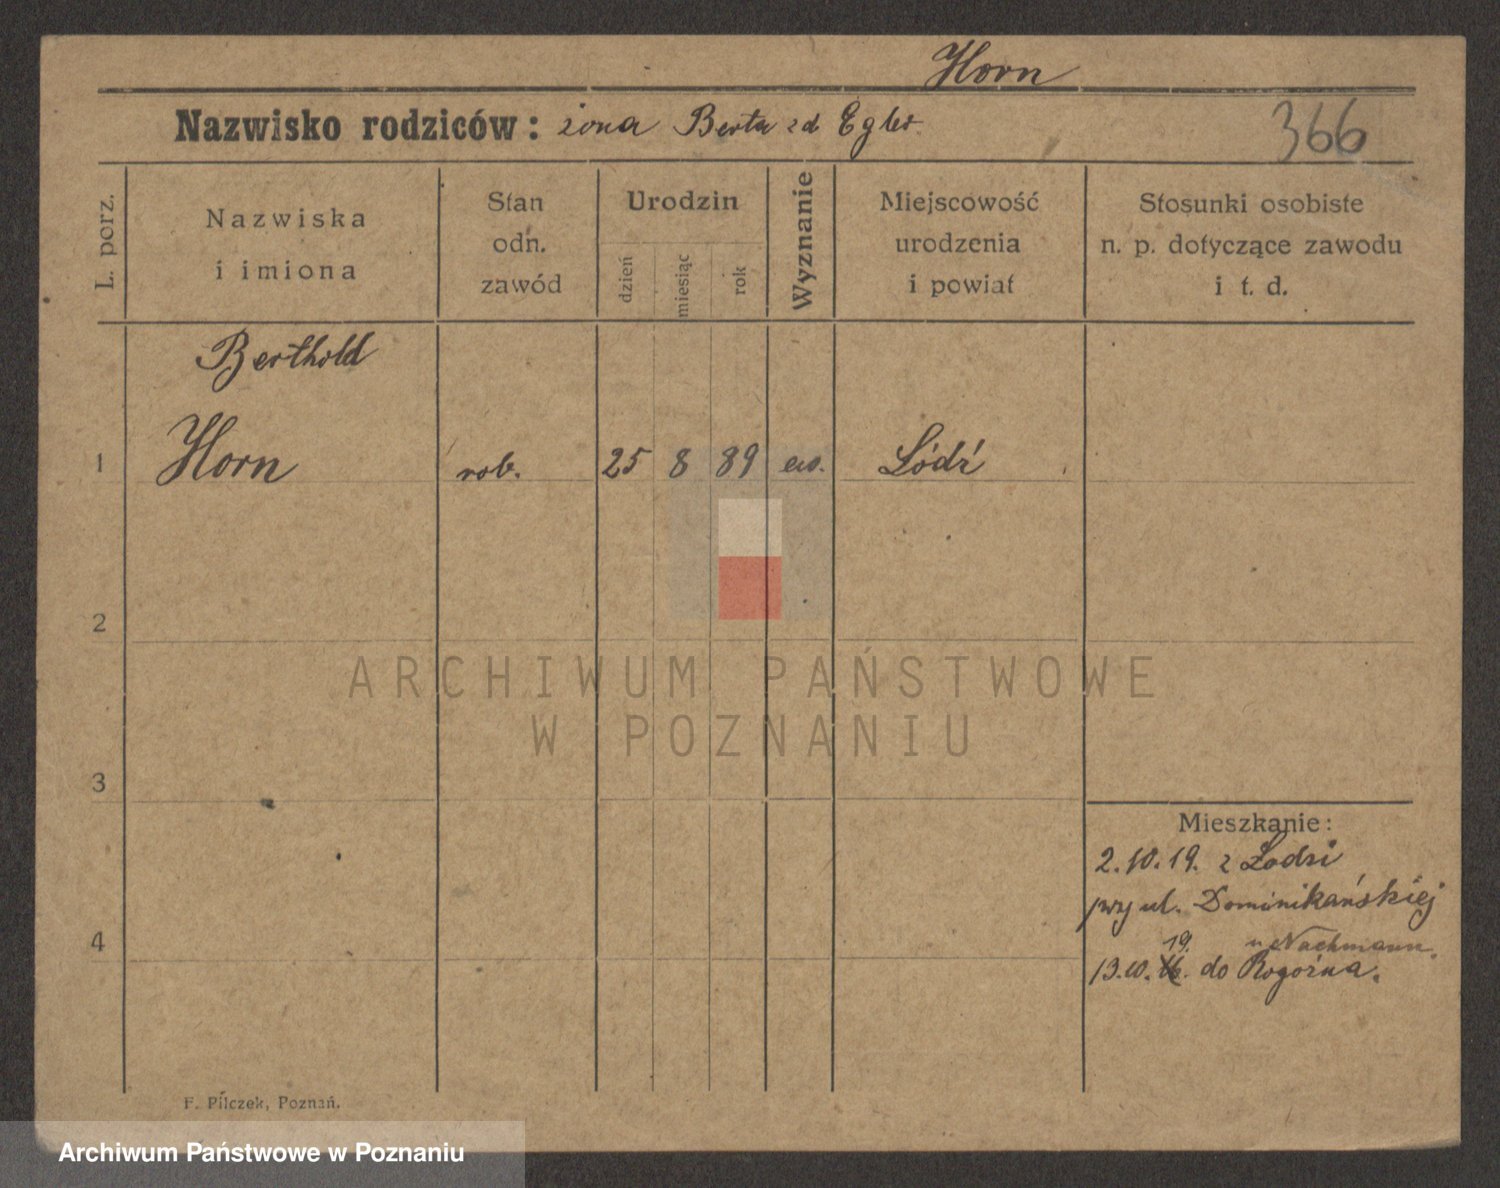 Horn
Nazwisko rodziców: żona Berta zd Egler
366
L. porz.
Nazwiska
i imiona
Stan
odn.
zawód
Urodzin
dzień
miesiąc
rok
Wyznanie
Miejscowość
urodzenia
i powiat
Stosunki osobiste
n. p. dotyczące zawodu
i t. d.
Berthold
1 Horn rob. 25 8 89 ew. Łódź
2
3
4
Mieszkanie:
2.10.19. z Łodzi
przy ul. Dominikańskiej
19. u Nachmann.
13.10. do Rogoźna.
F. Pilczek, Poznań.
ARCHIWUM PAŃSTWOWE
W POZNANIU
Archiwum Państwowe w Poznaniu